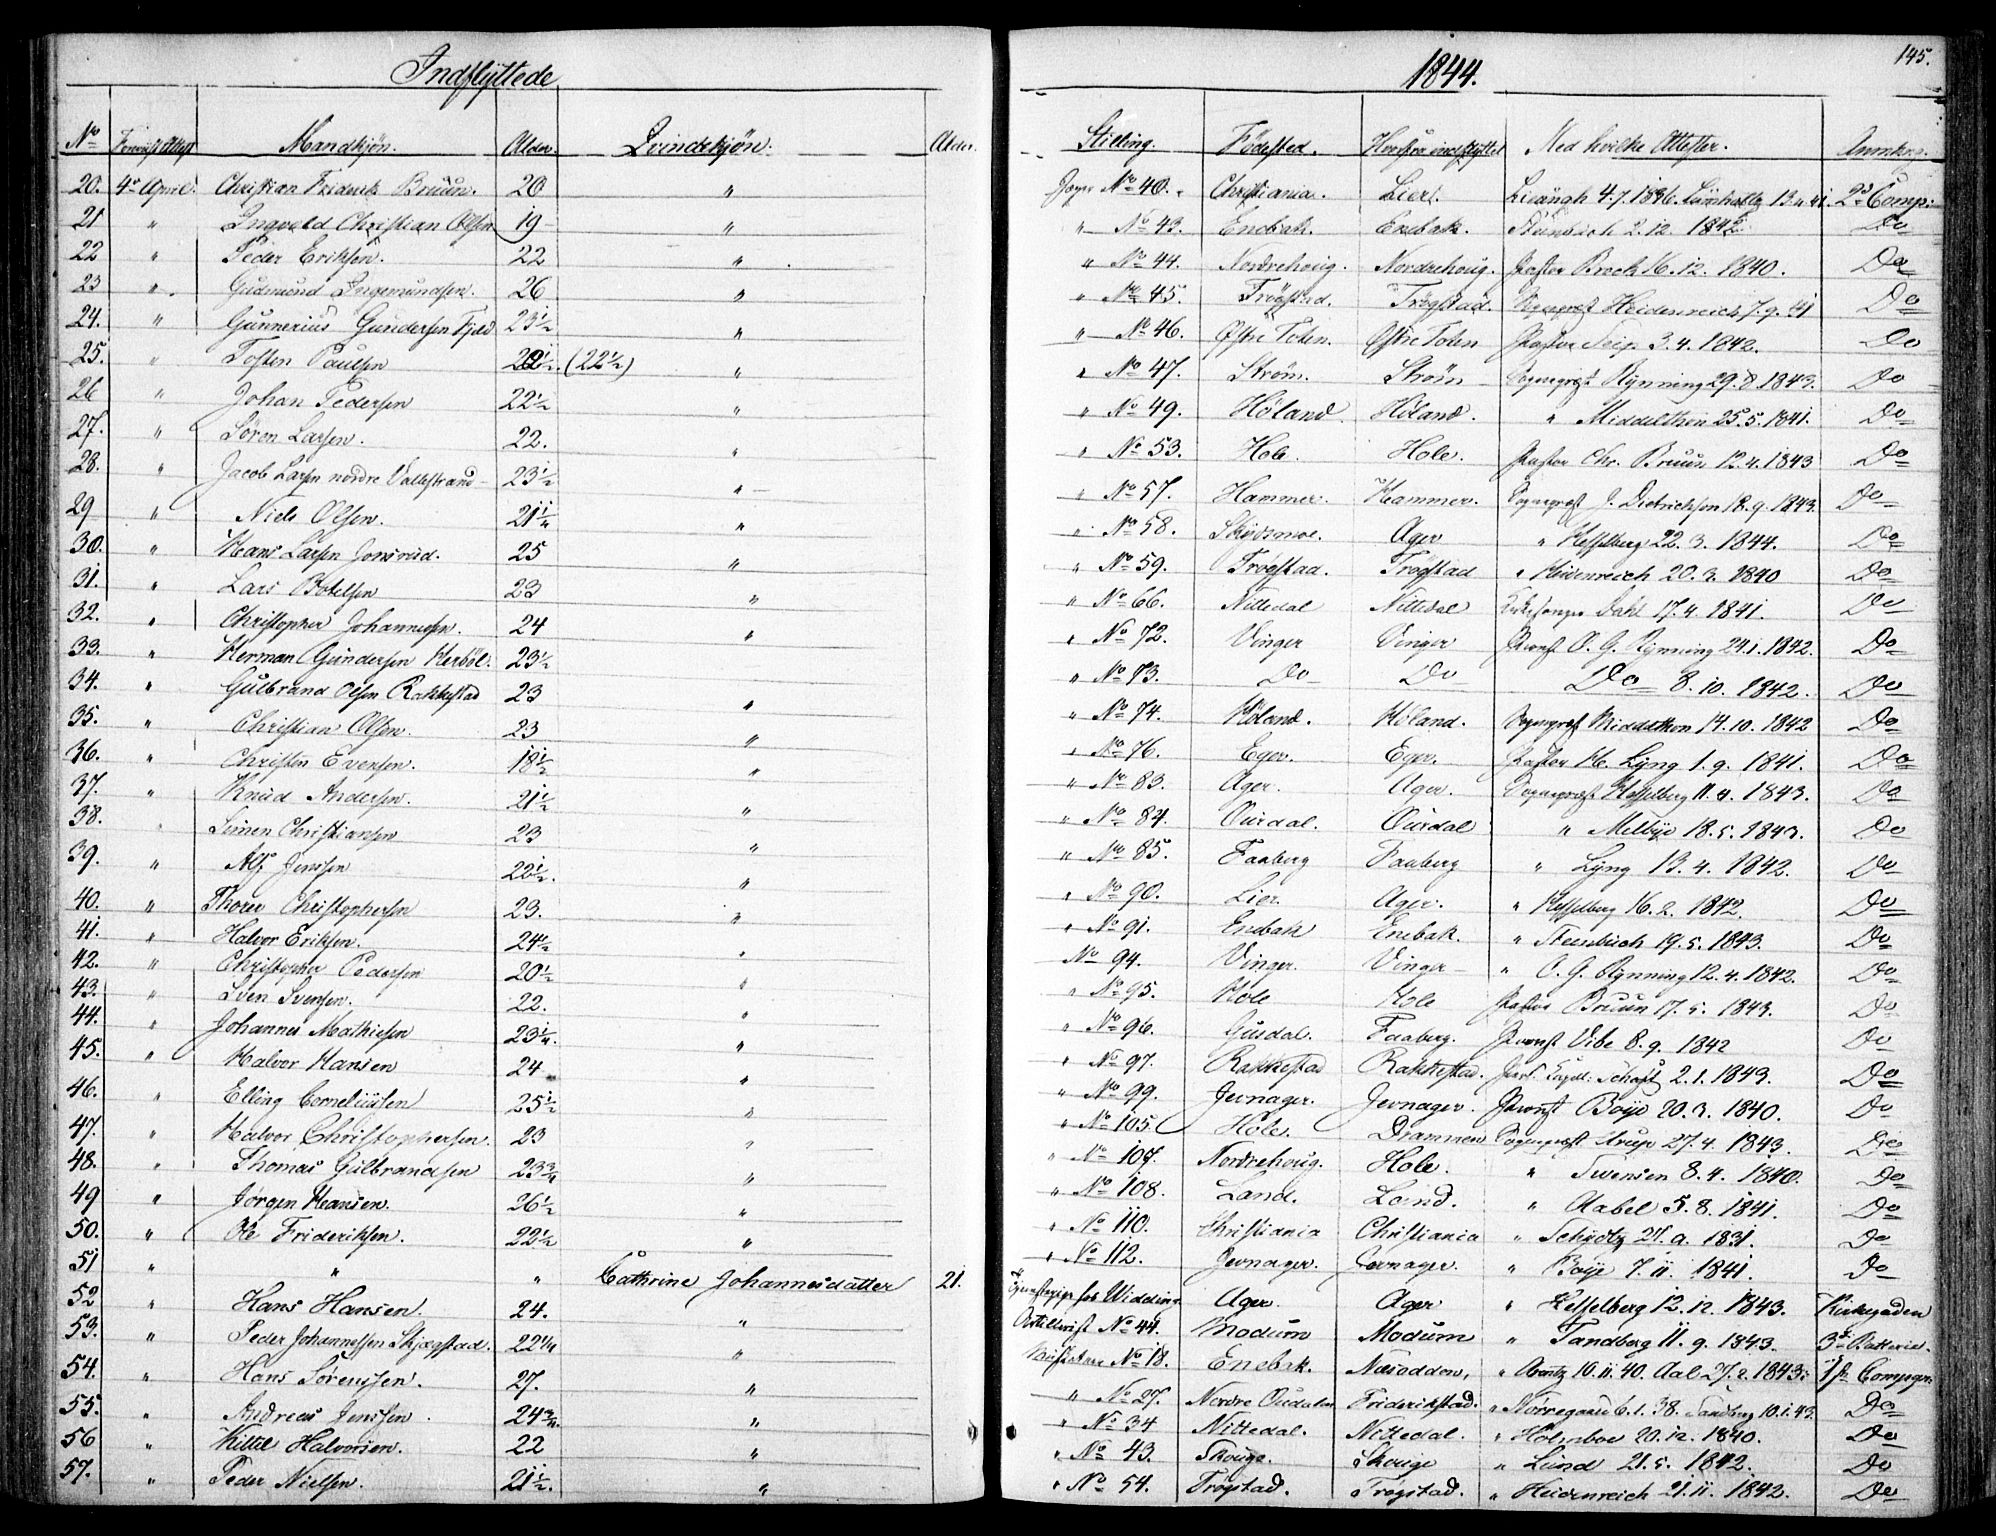 Indflyttede
1844.
145.
No Mandkjøn. Alder. Qvindekjøn. Alder. Stilling. Fødested. Hvorfra indflyttet Med hvilke Attester. Anmærkng.
20. 4de April. Christian Friderik Bruun. 20 " Jæger No 40. Christiania. Lier. 2d Comp:
21 " Ingvold Christian Olsen 19 " " No 43. Enebak. Enebak. 2.12. 1842. Do
22 " Peder Eriksen. 22 " " No 44. Nordrehoug. Nordrehoug. Pastor Brock 16.12. 1840. Do
23 " Gudmund Ingemundsen. 26 " " No 45. Trøgstad. Trøgstad. Sognepræst Heidenreich 7.9.41 Do
24. " Gunnerius Gundersen Fjeld 23½ " " No 46. Østre Toten. Østre Toten Pastor 3.4.1842. Do
25. " Tosten Paulsen (22½) " " No 47. Strøm. Strøm Sognepræst Rynning 29.8.1843. Do
26 " Johan Pedersen 22½ " " No 49. Høland. Høland. " Middelthon 25.5.1841. Do
27. " Søren Larsen. 22. " " No 53. Hole. Hole. Pastor Chr. Bruun 12.4.1843 Do
28. " Jacob Larsen nordre Vallestrand 23½ " " No 57. Hammer. Hammer. Sognepræst J. Dietrichson 18.9.1843. Do
29 " Niels Olsen. 21¼ " " No 58. Skedsmoe. Ager " Hesselberg 22.3.1844. Do
30. " Hans Larsen Jonsrud. 25 " " No 59. Trøgstad. Trøgstad " Heidenreich 20.3.1840 Do
31. " Lars Botelsen 23 " " No 66. Nittedal Nittedal Kirkesanger Dahl 17.4.1841. Do
32. " Christopher Johannessen. 24 " " No 72. Vinger Vinger Provst O. G. Rynning 24.1.1842. Do
33. " Herman Gundersen Herbøl. 23½ " No 73. Do Do Do 8.10.1842. Do
34. " Gulbrand Olsen Rakkestad 23 " " No 74. Høland. Høland. Sognepræst Middelthon 14.10.1842 Do
35. " Christian Olsen. 23 " " No 76. Eger. Eger. Pastor H. Lyng 1.9.1841. Do
36. " Christen Evensen. 18½ " " No 83. Ager. Ager. Sognepræst Hesselberg 11.4.1843. Do
37. " Knud Andersen. 21½ " " No 84. Ourdal. Ourdal " Melbye 18.5.1843. Do
38. " Simen Christiansen 23 " " No 85. Faaberg Faaberg " Lyng 13.4.1842. Do
39. " Alf Jenssen 22½. " " No 90. Lier. Ager. " Hesselberg 16.2.1842. Do
40. " Thorer Christophersen 23. " " No 91. Enebak Enebak. " Steenbuch 19.5.1843. Do
41. " Halvor Eriksen. 24½ " No 94. Vinger. Vinger " O. G. Rynning 12.4.1842. Do
42. " Christopher Pedersen 20½ " " No 95. Hole Hole Pastor Bruun 17.5.1843. Do
43. " Sven Svensen. 22. " " No 96. Gusdal. Faaberg. Provst Vibe 8.9.1842 Do
44. " Johannes Mathiesen 23¼. " " No 97. Rakkestad Rakkestad. Pers. Capell: 2.1.1843. Do
45. " Halvor Hansen 24 " " No 99. Jevnager. Jevnager. Provst Boye 20.3.1840. Do
46. " Elling Corneliusen 25½ " " No 105. Hole. Drammen Sognepræst 27.4.1843. Do
47. " Halvor Christophersen. 23 " " No 107. Nordrehoug. Hole. " Svensen 8.4.1840. Do
48. " Thomas Gulbrandsen 23¾ " " No 108. Land. Land. " Aabel 5.8.1841. Do
49 " Jørgen Hansen. 26½ " " No 110. Christiania Christiania " Schydtz 1831. Do
50. " Ole Frideriksen. 22½ " " No 112. Jevnager. Jevnager. " Boye 7.11.1841. Do
51 " " " Cathrine Johannesdatter 21. Tjenestepige hos Widding Ager. Ager " Hesselberg 12.12.1843. Kirkegaden
52 " Hans Hansen. 24. " Artillerist No 44. Modum Modum " Tandberg 11.9.1843. 3d Batterie.
53. " Peder Johannessen Skjægstad. 22¼ " No 18. Enebak. Næsodden, " Arentz 10.11.40. Aal 27.2.1843.
54. " Hans Sørenssen. 27. " " No 27. Nordre Frideriksstad. " Nørregaard 6.1.38. Tandberg 10.1.43. Do
55. " Andreas Jenssen. 24¾. " " No 34 Nittedal. Nittedal. " Holmboe 20.12.1840. Do
56 " Kittil Halvorsen. 22 " " No 43. Skouge. Skouge " Lund 21.5.1842. Do
57. " Peder Nielsen. 21½. " " No 54. Trøgstad. Trøgstad. " Heidenreich 21.11.1842. Do